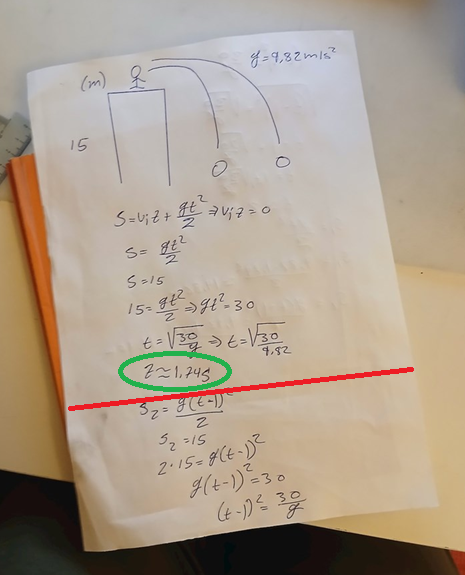 g=9,82m/s²
(m)
15
S=v_i z+gt²/2 ⇒ v_i z=0
S=gt²/2
S=15
15=gt²/2 ⇒ gt²=30
t=√30/g ⇒ t=√30/9,82
z≈1,74s
S₂=g(t-1)²/2
S₂=15
2·15=g(t-1)²
g(t-1)²=30
(t-1)²=30/g